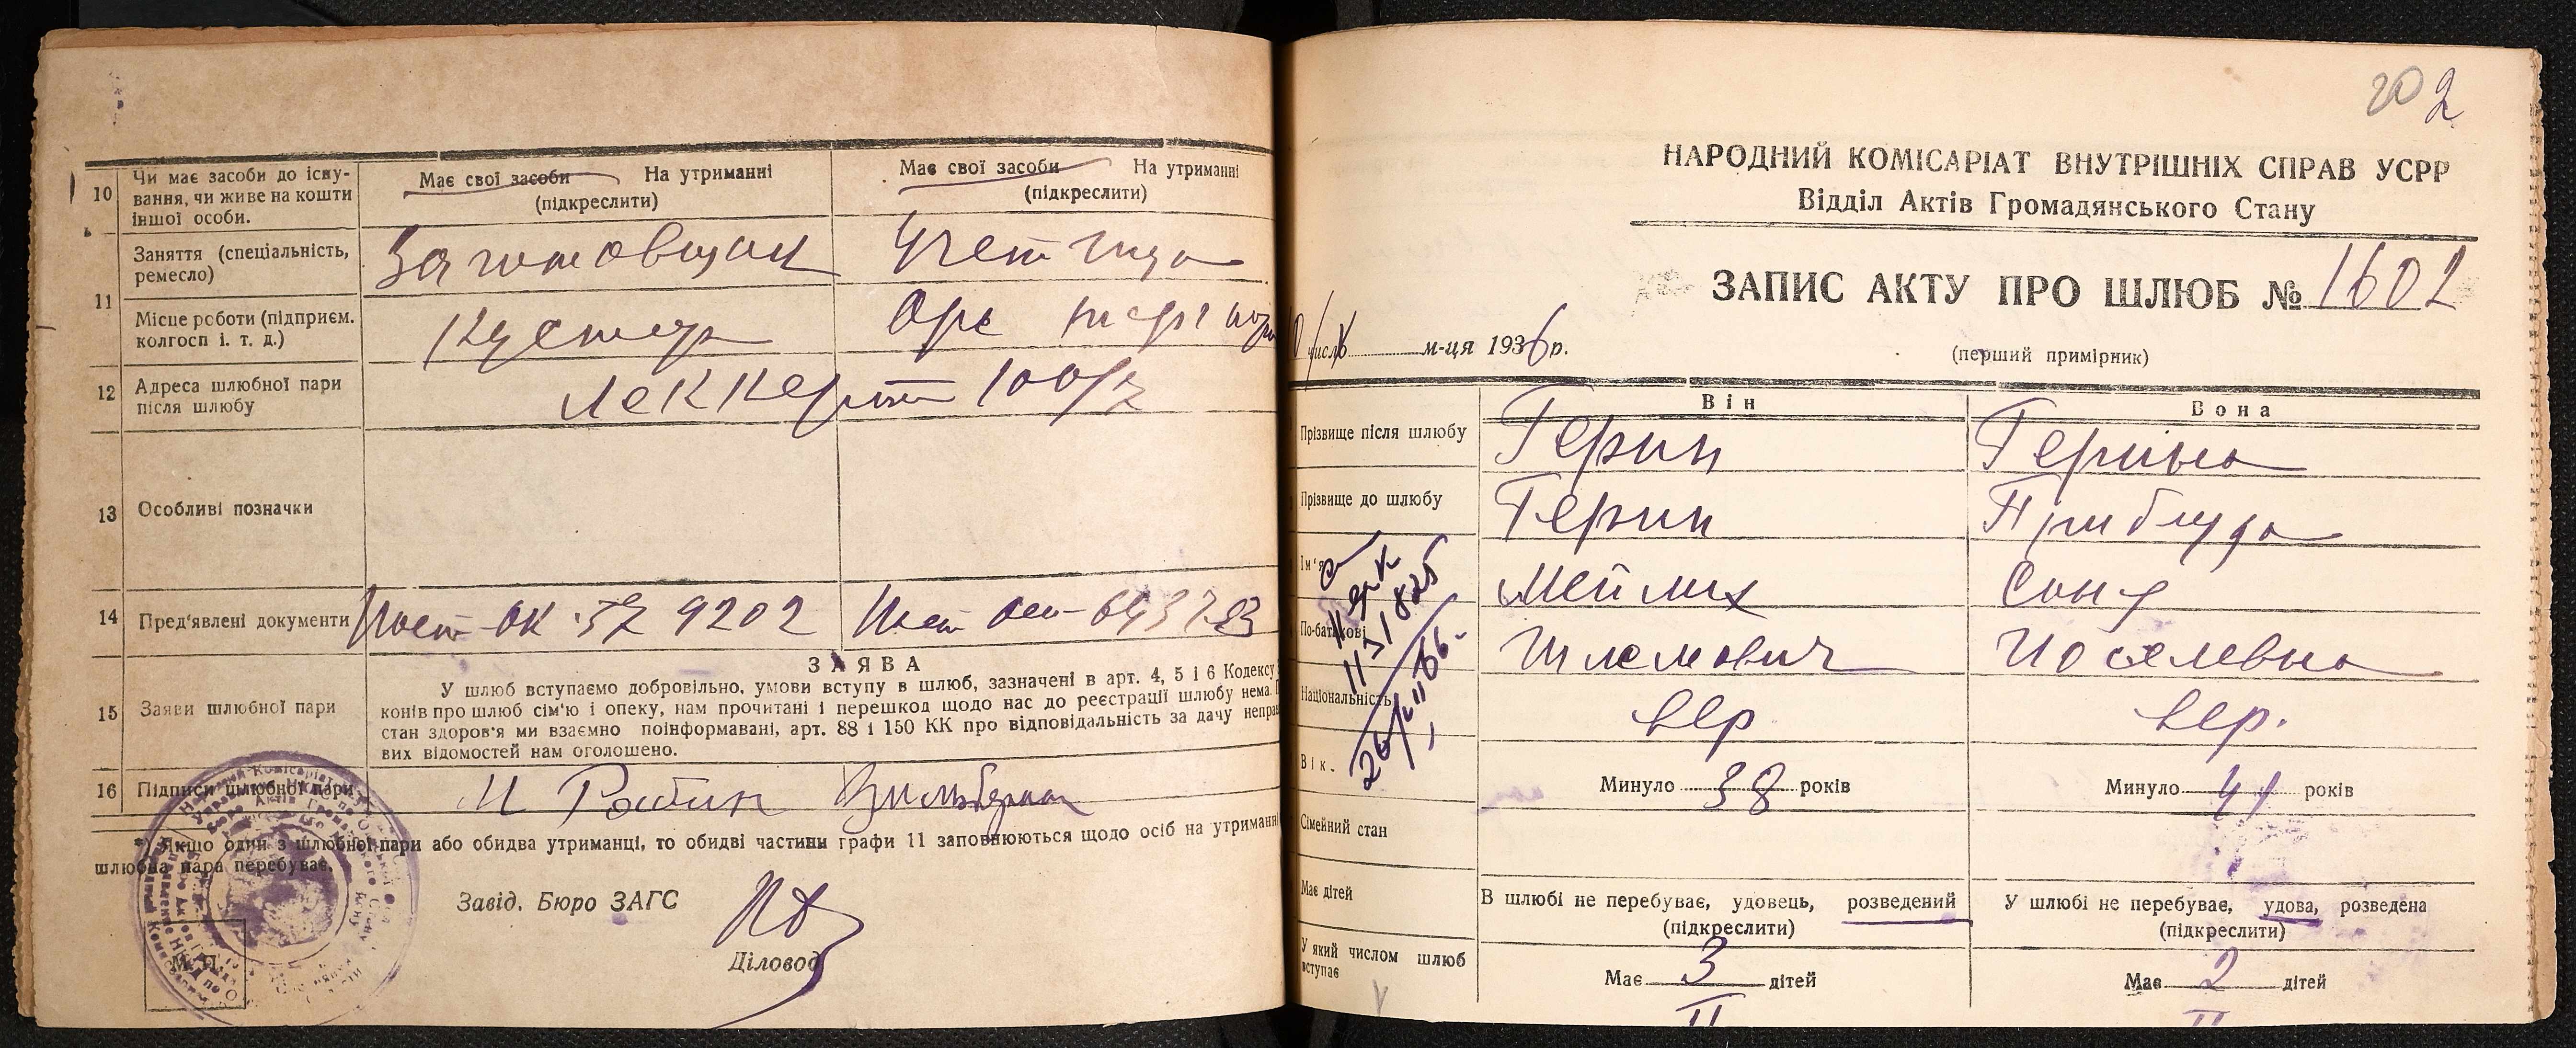 10 Чи має засоби до існу-
вання, чи живе на кошти
іншої особи.
Має свої засоби На утриманні
(підкреслити)
Має свої засоби На утриманні
(підкреслити)
11 Заняття (спеціальність,
ремесло)
Заготовщик
Місце роботи (підприєм.
колгосп і. т. д.)
Кустар
12 Адреса шлюбної пари
після шлюбу
Леккерт 100/2
13 Особливі позначки
14 Пред'явлені документи
9202
15 Заяви шлюбної пари
ЗАЯВА
У шлюб вступаємо добровільно, умови вступу в шлюб, зазначені в арт. 4, 5 і 6 Кодексу
конів про шлюб сім'ю і опеку, нам прочитані і перешкод щодо нас до реєстрації шлюбу нема.
стан здоров'я ми взаємно поінформавані, арт. 88 і 150 КК про відповідальність за дачу неправ
вих відомостей нам оголошено.
16 Підписи шлюбної пари
*) Якщо один з шлюбної пари або обидва утриманці, то обидві частини графи 11 заповнюються щодо осіб на утриманні
шлюбна пара перебуває.
Завід. Бюро ЗАГС
Діловод
М. П.
20 2
НАРОДНИЙ КОМІСАРІАТ ВНУТРІШНІХ СПРАВ УСРР
Відділ Актів Громадянського Стану
ЗАПИС АКТУ ПРО ШЛЮБ № 1602
числа м-ця 1936 р.
(перший примірник)
Він Вона
Прізвище після шлюбу Герин Герина
Прізвище до шлюбу Герин Приблуда
Ім'я Мейлих Соня
По-батькові Шлемович Иоселевна
Національність евр евр.
Вік. Минуло 38 років Минуло 41 років
Сімейний стан
В шлюбі не перебуває, удовець, розведений
(підкреслити)
У шлюбі не перебуває, удова, розведена
(підкреслити)
Має дітей
Має 3 дітей Має 2 дітей
У який числом шлюб
вступає
II II